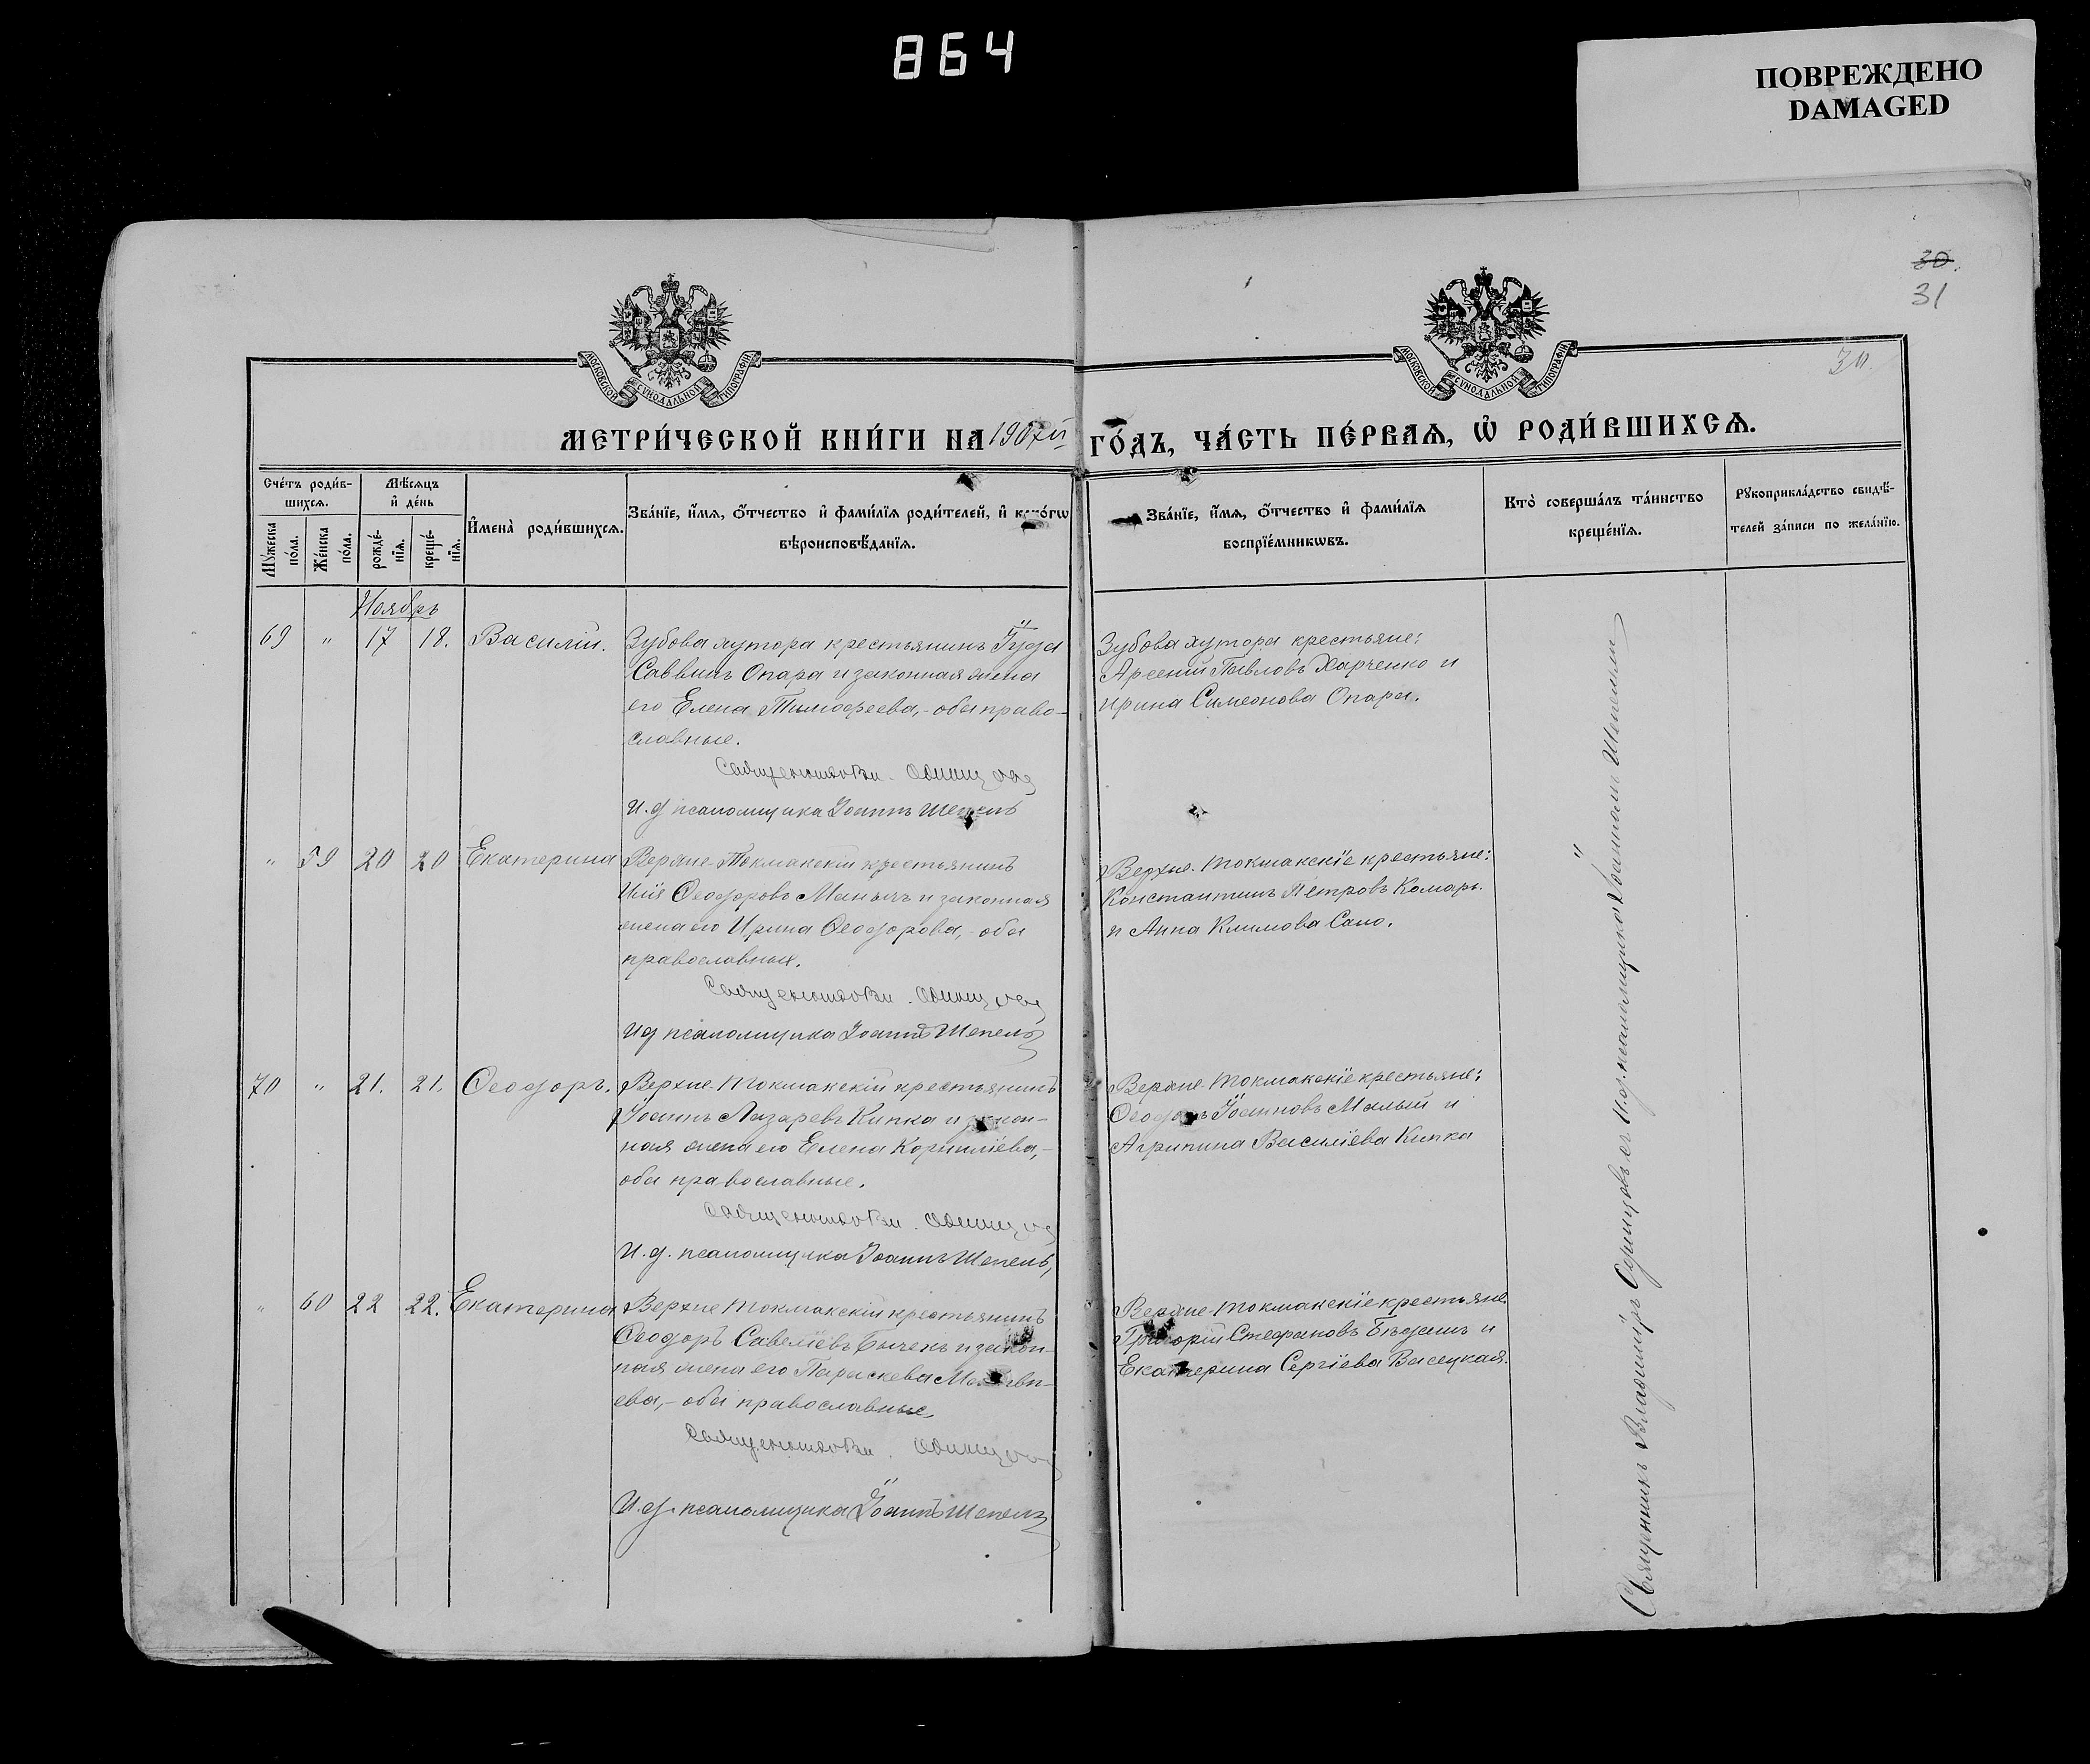 864
ПОВРЕЖДЕНО
DAMAGED
30.
31
30.
МОСКОВСКОЙ СѴНОДАЛЬНОЙ ТИПОГРАФІИ
МОСКОВСКОЙ СѴНОДАЛЬНОЙ ТИПОГРАФІИ
МЕТРИ́ЧЕСКОЙ КНИ́ГИ НА 1907й ГО́ДЪ, ЧА́СТЬ ПЕ́РВАѦ, Ѡ҆ РОДИ́ВШИХСѦ.
Сче́тъ роди́в-
шихсѧ.
Мѣ́сѧцъ
и҆ де́нь
Мꙋ́жеска
по́ла.
Же́нска
по́ла.
рожде́-
нїѧ.
креще́-
нїѧ.
И҆мена̀ роди́вшихсѧ.
Зва́нїе, и҆́мѧ, ѻ҆́тчество и҆ фами́лїѧ роди́телей, и҆ како́гѡ
вѣроисповѣ́данїѧ.
Зва́нїе, и҆́мѧ, ѻ҆́тчество и҆ фами́лїѧ
воспрїе́мникѡвъ.
Кто̀ соверша́лъ та́инство
креще́нїѧ.
Рꙋкоприкла́дство свидѣ́-
телей за́писи по жела́нїю.
Ноябрь
69 " 17 18. Василій.
Зубова хутора крестьянинъ Іуда
Саввинъ Опара и законная жена
его Елена Тимофеева,- оба право-
славные.
Священникъ Вл. Одинцовъ
И. д псаломщика Іоаннъ Шепель
Зубова хутора крестьяне:
Арсеній Павловъ Харченко и
Ирина Симеонова Опара.
" 59 20 20 Екатерина
Верхне-Токмакскій крестьянинъ
Илія Ѳеодоровъ и законная
жена его Ирина Ѳеодорова,- оба
православных.
Священникъ Вл. Одинцовъ
И д псаломщика Іоаннъ Шепель
Верхне-Токмакскіе крестьяне:
Константинъ Петровъ Комаръ.
и Анна Климова Сало.
70 " 21. 21. Ѳеодоръ.
Верхне-Токмакскій крестьянинъ
Іоаннъ Лазаревъ Кипка и закон-
ная жена его Елена Корниліева,-
оба православные.
Священникъ Вл. Одинцовъ
И. д. псаломщика Іоаннъ Шепель
Верхне-Токмакскіе крестьяне:
Ѳеодоръ Іоанновъ Малый и
Агрипина Василіева Кипка
" 60 22 22. Екатерина
Верхне Токмакскій крестьянинъ
Ѳеодоръ Савеліевъ и закон-
ная жена его Параскева Матѳи-
ева,- оба православные
Священникъ Вл. Одинцовъ
И. д. псаломщика Іоаннъ Шепель
Верхне-Токмакскіе крестьяне.
Григорій Стефановъ и
Екатерина Сергіева Висецкая.
Священникъ Владиміръ Одинцовъ съ И. д. псаломщика Іоанномъ Шепелемъ